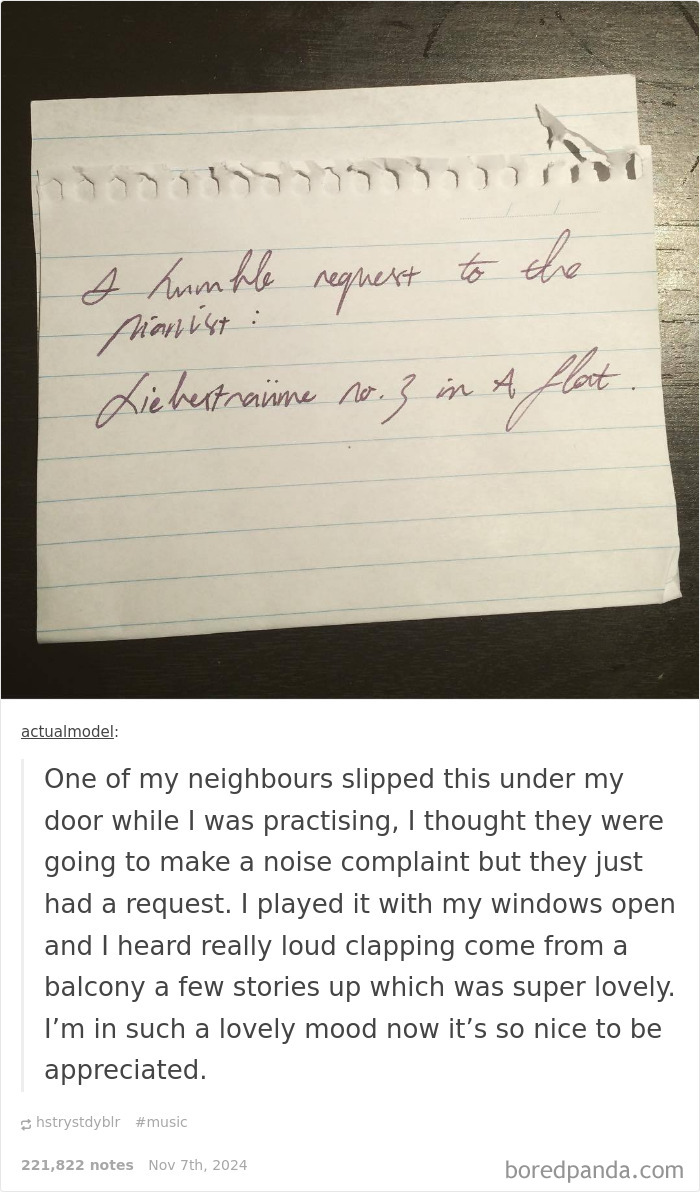 A humble request to the
pianist :
Liebesträume no. 3 in A flat.
actualmodel:
One of my neighbours slipped this under my
door while I was practising, I thought they were
going to make a noise complaint but they just
had a request. I played it with my windows open
and I heard really loud clapping come from a
balcony a few stories up which was super lovely.
I’m in such a lovely mood now it’s so nice to be
appreciated.
hstrystdyblr #music
221,822 notes Nov 7th, 2024
boredpanda.com